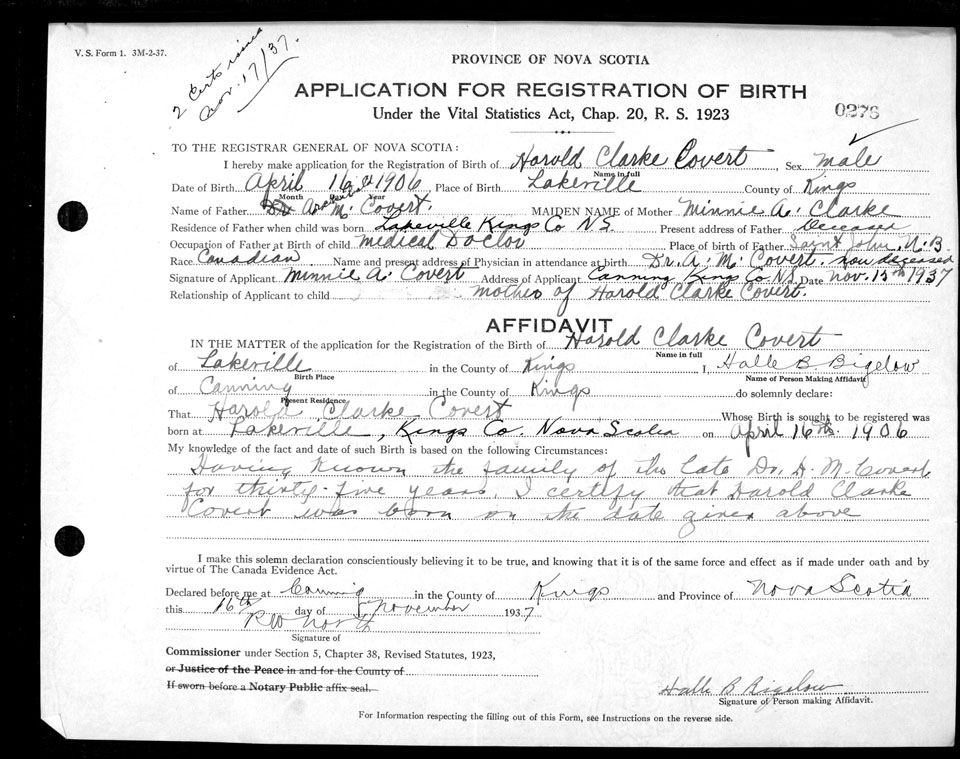 V. S. Form 1. 3M-2-37.
2 Certs issued
Nov. 17/37.
PROVINCE OF NOVA SCOTIA
APPLICATION FOR REGISTRATION OF BIRTH
Under the Vital Statistics Act, Chap. 20, R. S. 1923
0276
TO THE REGISTRAR GENERAL OF NOVA SCOTIA:
I hereby make application for the Registration of Birth of Harold Clarke Covert, Sex male
Name in full
Date of Birth April 16th 1906 Place of Birth Lakeville County of Kings
Month Day Year
Name of Father Dr M. Covert. MAIDEN NAME of Mother Minnie A. Clarke
Residence of Father when child was born Lakeville Kings Co N.S. Present address of Father Deceased
Occupation of Father at Birth of child Medical Doctor Place of birth of Father Saint John, N.B.
Race Canadian Name and present address of Physician in attendance at birth Dr. A. M. Covert. now deceased
Signature of Applicant Minnie A. Covert Address of Applicant Canning Kings Co N.S. Date Nov. 15th 1937
Relationship of Applicant to child mother of Harold Clarke Covert.
AFFIDAVIT
IN THE MATTER of the application for the Registration of the Birth of Harold Clarke Covert
Name in full
of Lakeville in the County of Kings I, Halle B. Bigelow
Birth Place Name of Person Making Affidavit
of Canning in the County of Kings do solemnly declare:
Present Residence
That Harold Clarke Covert Whose Birth is sought to be registered was
born at Lakeville, Kings Co. Nova Scotia on April 16th 1906
My knowledge of the fact and date of such Birth is based on the following Circumstances:
Having known the family of the late Dr. A. M. Covert
for thirty-five years, I certify that Harold Clarke
Covert was born on the date given above
I make this solemn declaration conscientiously believing it to be true, and knowing that it is of the same force and effect as if made under oath and by
virtue of The Canada Evidence Act.
Declared before me at Canning in the County of Kings and Province of Nova Scotia
this 16th day of November 1937
R W North
Signature of
Commissioner under Section 5, Chapter 38, Revised Statutes, 1923,
or Justice of the Peace in and for the County of
If sworn before a Notary Public affix seal.
Halle B Bigelow
Signature of Person making Affidavit.
For Information respecting the filling out of this Form, see Instructions on the reverse side.